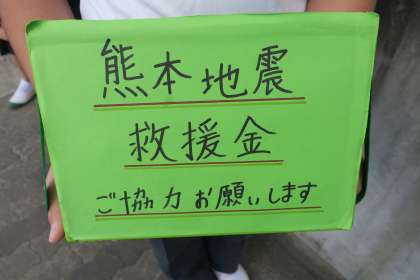 熊本地震
救援金
ご協力お願いします